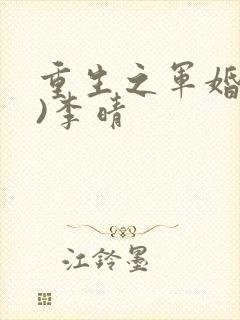 重生之军婚
)李晴
江铃墨